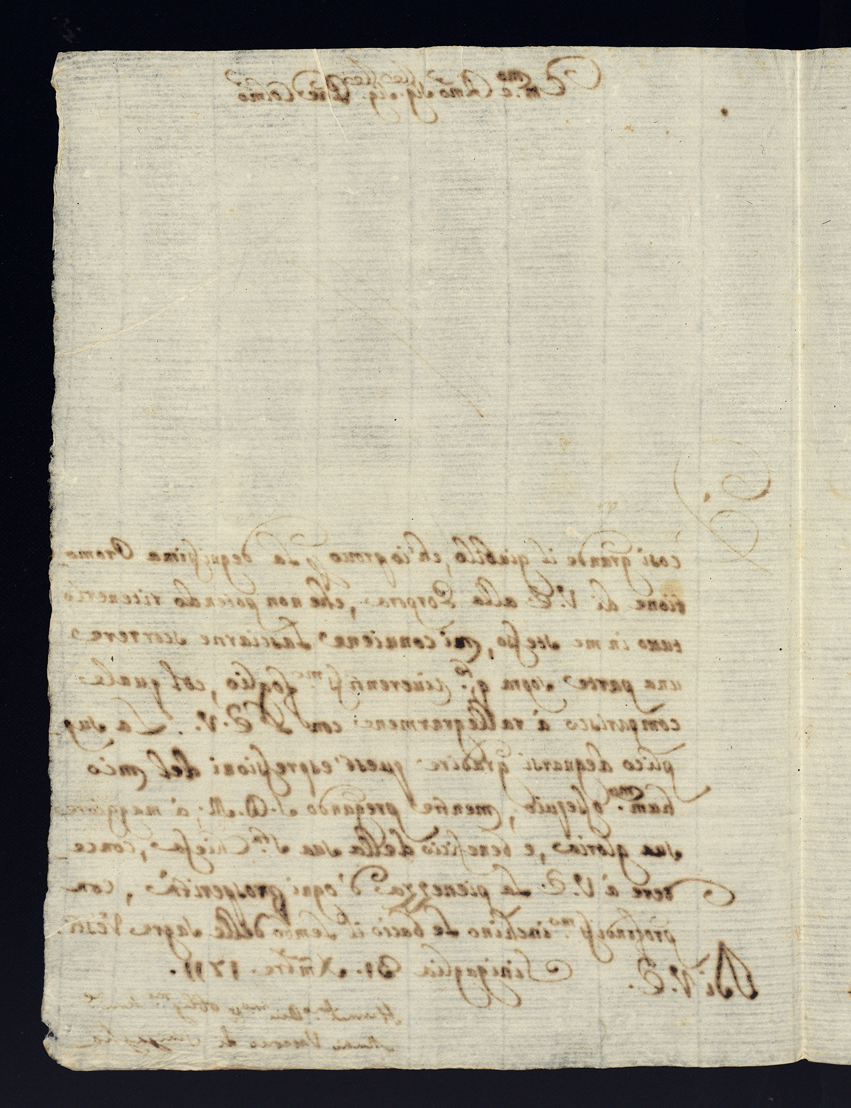 Em.mo e Rmo Sig. Sig. Pne Colmo
È
così grande il giubillo, ch'io prouo p La degnissima Promo
tione di V. E. alla Porpora, che, non potendo ritenerlo
tutto in me stesso, mi conuiene Lasciarne scorrere
una parte sopra q.to riuerentiss.mo foglio, col quale
comparisco à rallegrarmene con L'E. V. . La sup
plico degnarsi gradire quest'espressioni del mio
hum.mo ossequio, mentre pregando S. D. M., à maggiore
sua gloria, e beneficio della sua S.ta Chiesa, conce
dere à V. E. La pienezza d'ogni prosperità, con
profondiss.mo inchino Le bacio il Lembo della Sagra Veste.
Di V. E. Sinigaglia 31. Xmbre. 1711.
Humil.mo Deu.mo Obblig.mo
Vescouo di Sinigaglia